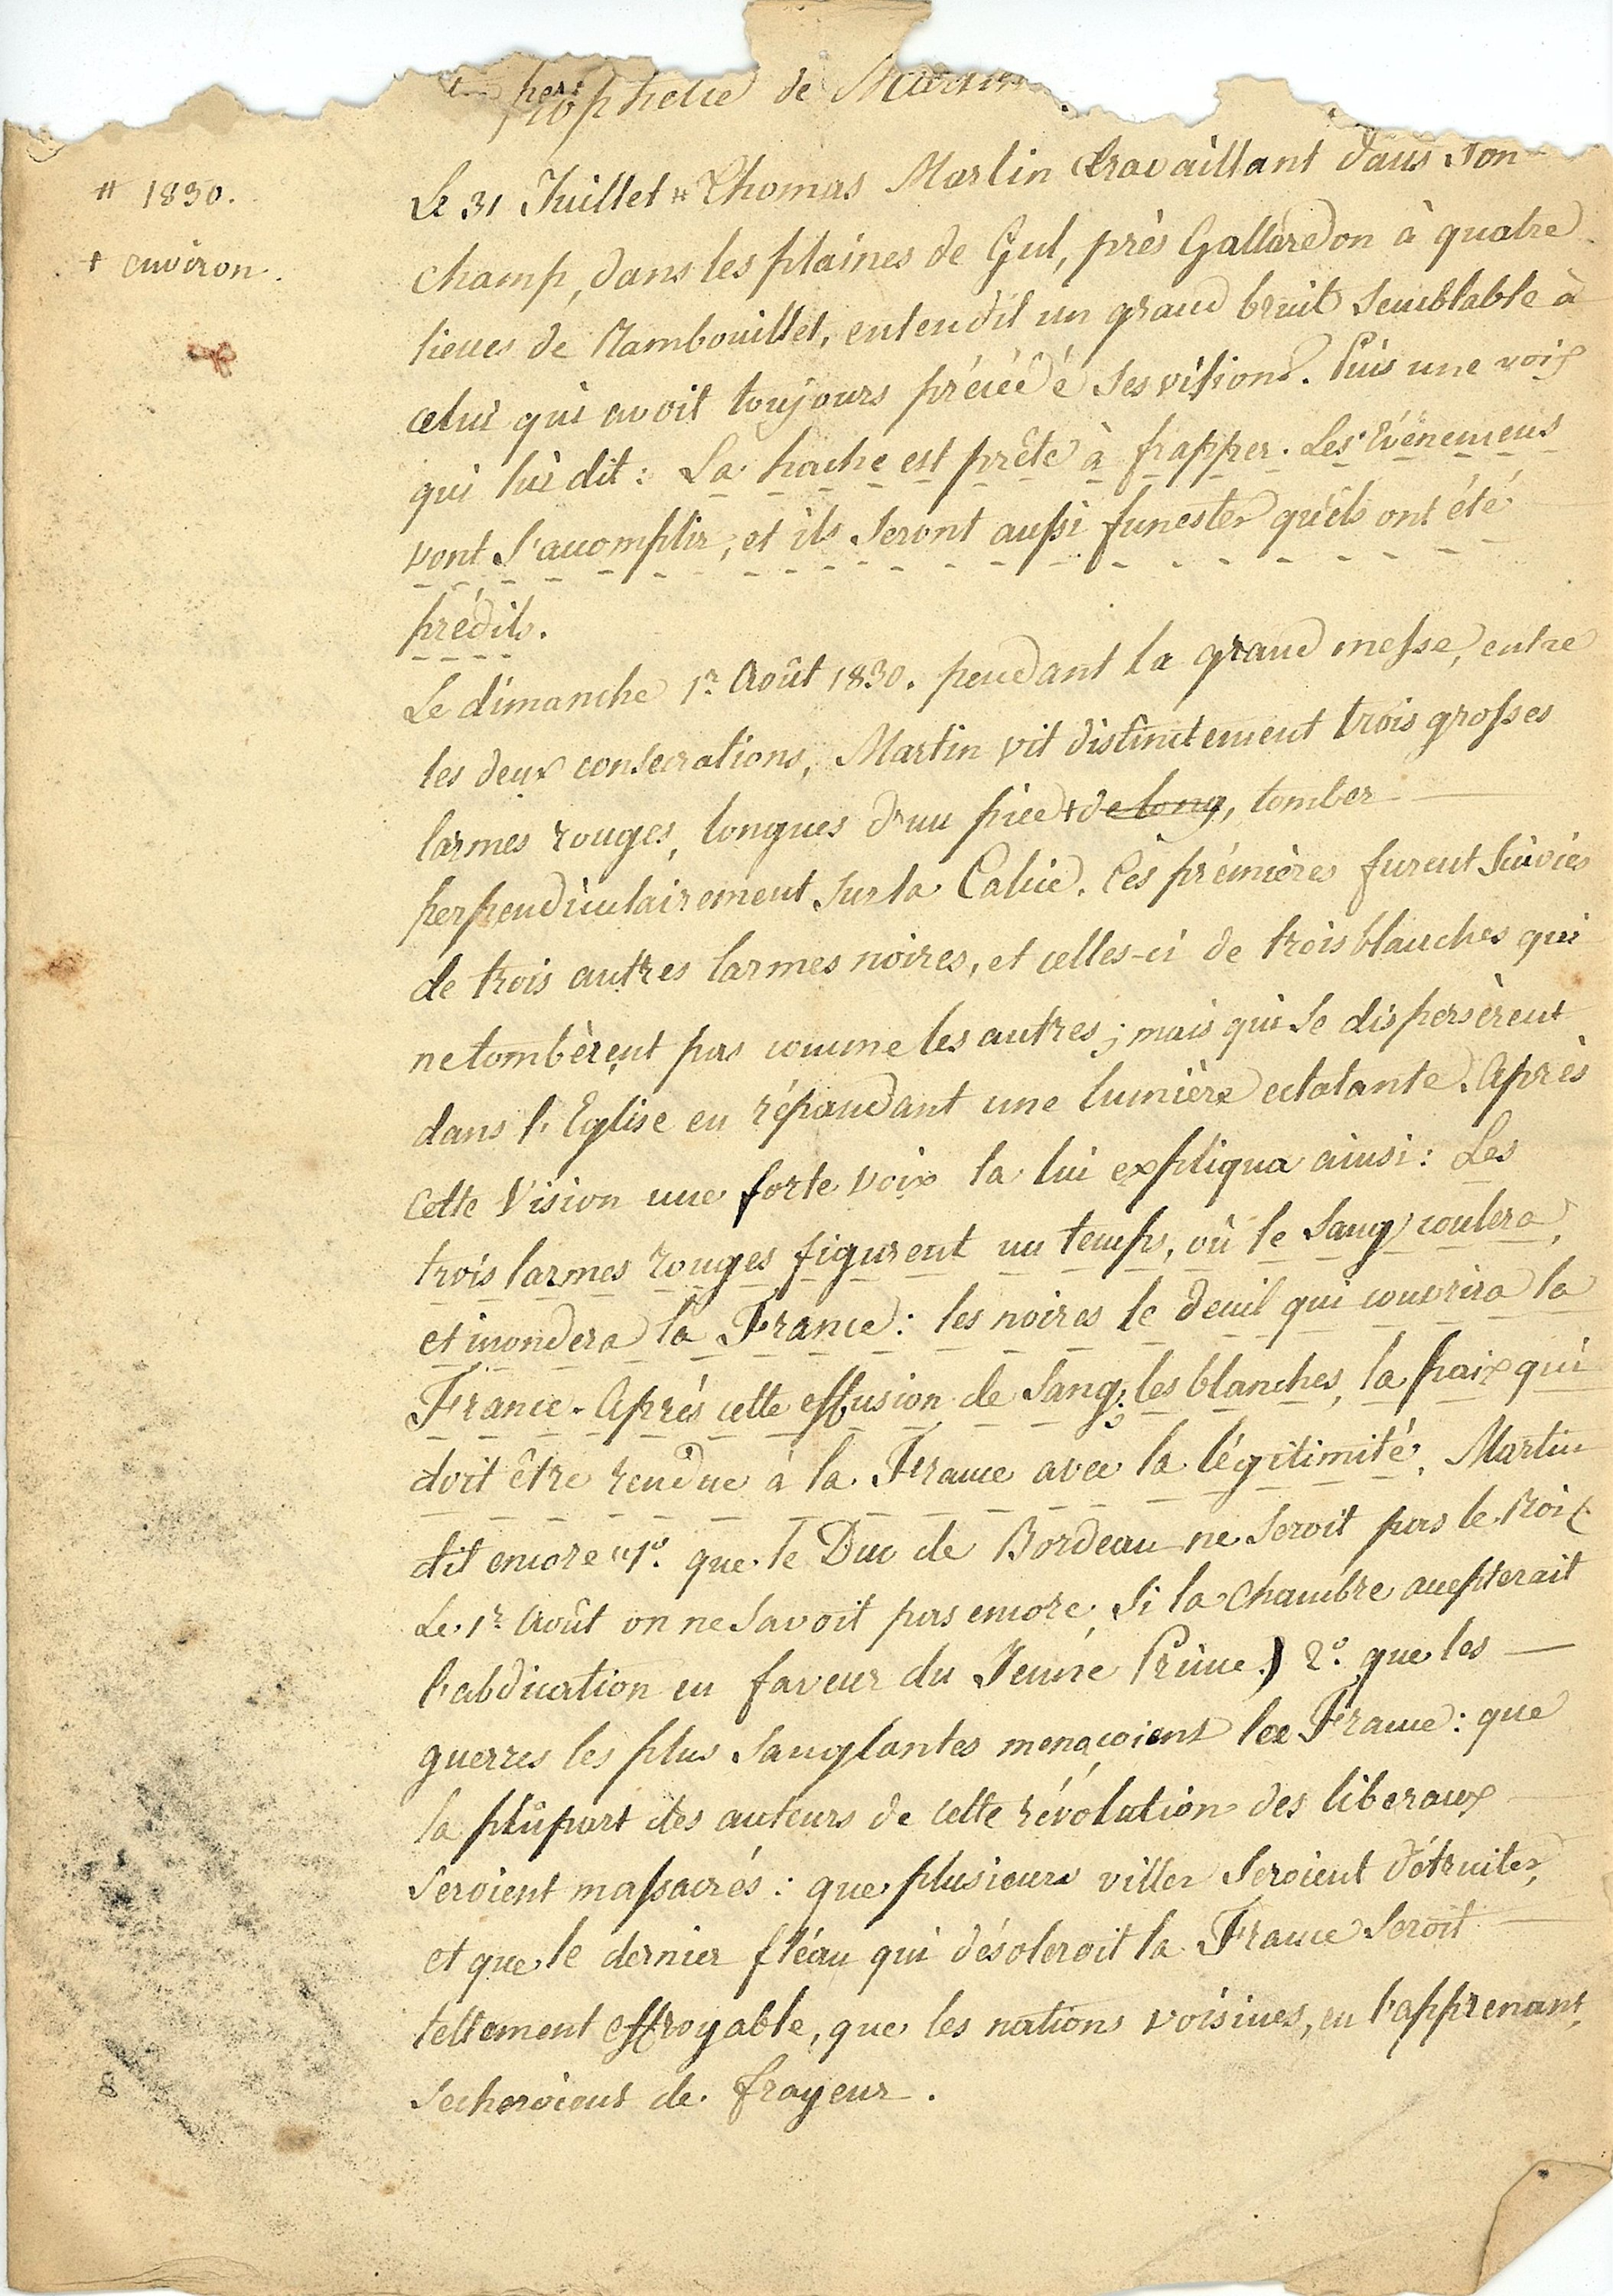 prophetie de Martin
# 1830.
Le 31 Juillet # Thomas Martin travaillant dans son
+ environ.
champ, dans les plaines de Gul, près Gallaredon à quatre
lieues de Rambouillet, entendit un grand bruit semblable à
celui qui avoit toujours précédé ses visions. Puis une voix
qui lui dit: La hache est prête à frapper. Les Evénemens
vont s'accomplir, et ils seront aussi funestes qu'ils ont été
prédits.
Le dimanche 1r. Août 1830. pendant la grand messe, entre
les deux consecrations, Martin vit distinctement trois grosses
larmes rouges, longues d'un pied + de long, tomber
perpendiculairement sur la Calice. Ces prémières furent suivies
de trois autres larmes noires, et celles-ci de trois blanches qui
ne tombèrent pas comme les autres; mais qui se dispersèrent
dans l'Eglise en répandant une lumière eclatante. Après
cette Vision une forte voix la lui expliqua ainsi: Les
trois larmes rouges figurent un temps, où le sang coulera,
et inondera la France: les noires le deuil qui couvrira la
France. Après cette effusion de sang; les blanches, la paix qui
doit être rendue à la France avec la légitimité. Martin
dit encore "1º. que le Duc de Bordeau ne seroit pas le Roi (
Le 1r. Août on ne savoit pas encore, si la Chambre accepterait
l'abdication en faveur du Jeune Prince.) 2º. que les
guerres les plus sanglantes menaçoient la France: que
la plûpart des auteurs de cette révolution des liberaux
seroient massacrés: que plusieurs villes seroient détruites,
et que le dernier fléau qui désoleroit la France seroit
tellement effroyable, que les nations voisines, en l'apprenant,
secheroient de frayeur.
8